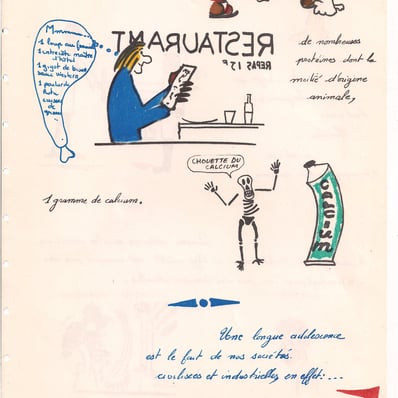 Mmmmm...
1 loup au fenouil
1 entrecôte maître
d'hôtel
1 gigot de
1 poularde
cuisses de
RESTAURANT
REPAS 15F
de nombreuses
protéines dont la
moitié d'origine
animale,
CHOUETTE DU
CALCIUM
CALCIUM
1 gramme de calcium.
Une longue adolescence
est le fait de nos sociétés
civilisées et industrielles en effet:...